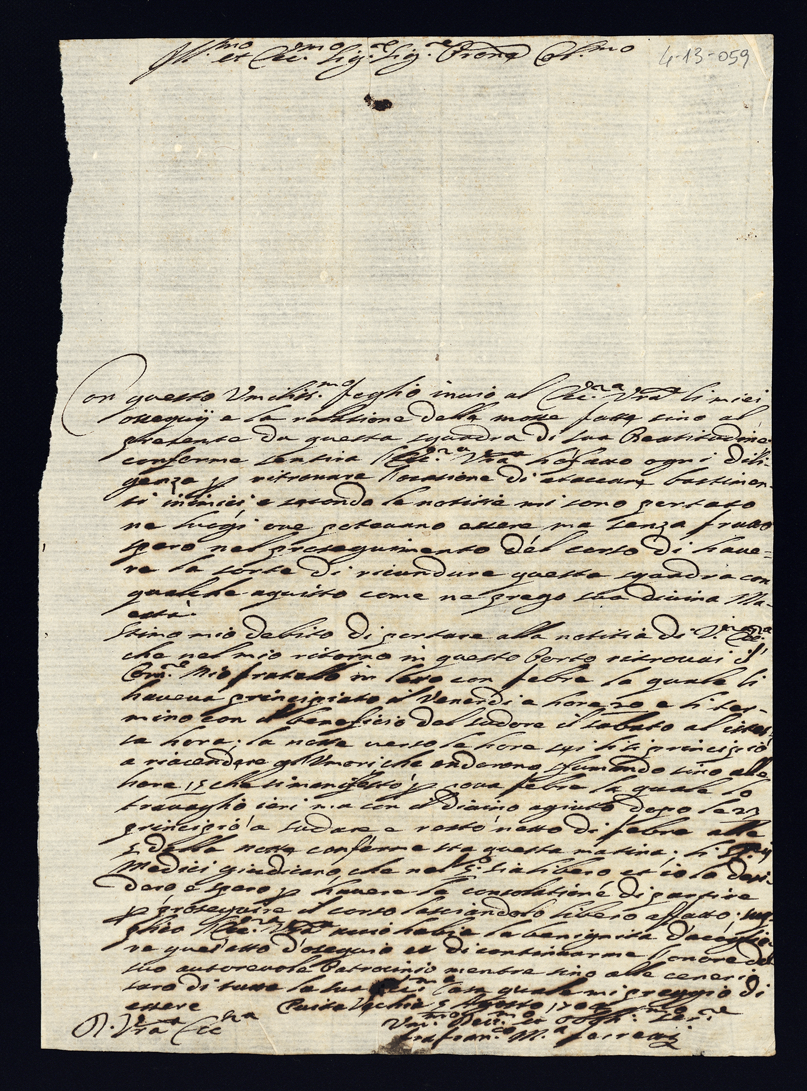 Ill.mo et Ecc.mo Sig.re Sig.re Prone Col.mo
4-13-059
Con questo Vmiliss.mo foglio inuio al Ecc.za Vra li miei
ossequij e la relatione delle mosse fatte sino al
presente da questa squadra di sua Beatitudine
conforme sentira l'Ecc.za Vra ho fatto ogni dili-
genza p ritrouare l'ocasione di atacare bastimen-
ti inimici e secondo le notitie mi sono portato
ne luogi oue poteuano essere ma senza frutto
spero nel proseguimento del corso di haue-
re la sorte di ricondure questa squadra con
qualche aquisto come ne prego sua diuina Ma-
està
Stimo mio debito di portare alla notitia di V. Ecc.za
che nel mio ritorno in questo Porto ritrouai il
Com.re Mio fratello in letto con febre la quale li
haueua principiato il Venerdi a hore 20 e li ter-
mino con il beneficio del sudore il sabato al istes-
sa hora; la notte verso le hore sei li si principiò
a riacendere gl'Vmori che andorono fumando sino alle
hore 15 che si manifestò p noua febre la quale lo
trauaglio ieri ma con il diuino agiuto dopo le 21
principiò a sudare e restò netto di febre alle
5 della notte conforme sta questa matina; li SS.ri
Medici giudicano che nel 5.o sia libero et io lo desi-
dero e spero p hauere la consolatione di partire
p proseguire il corso lasciandolo libero affatto; sup-
plico l'Ecc.za Vra habia la benignita d'acoglie-
re quest'atto d'ossequio et di continuarme l'onore del
suo autoreuole Patrocinio mentre sino alle ceneri
saro di tutta la sua Ecc.ma Casa quale mi preggio di
essere Ciuita Vechia 5 Agosto 170
D. Vra Ecc.za
Vm.mo Deu.mo et Obblig.mo Ser.re
fra fran.co M.a ferretti